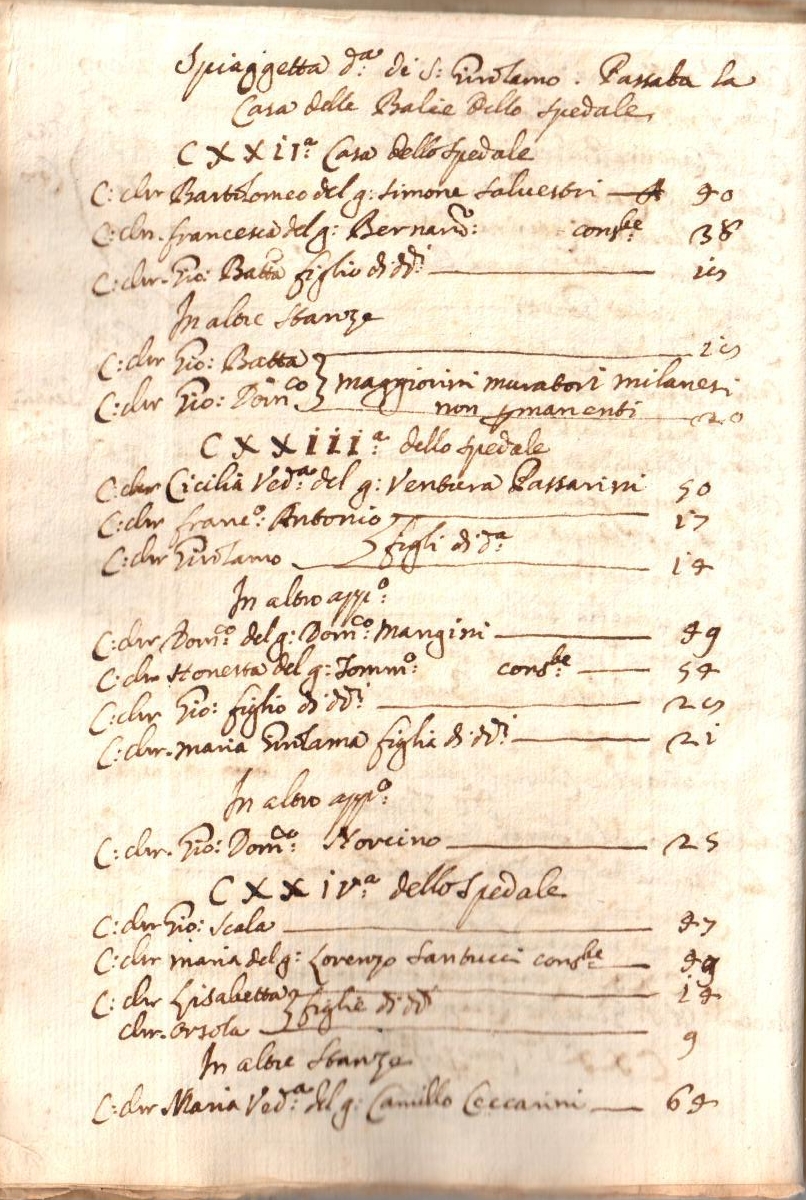 Spiaggetta d:ª di S: Girolamo. Passata la
Casa delle Balie dello Spedale
CXXIIª Casa dello Spedale
C: chr Bartolomeo del q: Simone Salvestri — 40
C: chr. francesca del q: Bernard:º cons:be 38
C: chr. Gio: Batta figlio di dd:i —
In altre Stanze
C: chr Gio: Batta
C: chr Gio: Dom:co } maggiorini muratori milanesi
non pmanenti — 20
CXXiiiª dello Spedale
C: chr Cicilia Ved:ª del q: Ventura Passarini 50
C: chr franc:º Antonio — 17
C: chr Girolamo — } figli di d:ª 14
In altro app:º
C: chr Dom:co del q: Dom:co Mangini — 49
C: chr Honesta del q: Tomm:º cons:be — 54
C: chr Gio: figlio di dd:i —
C: chr. maria Girolama figlia di dd:i — 21
In altro app:º
C: chr. Gio: Dom:co Norcino — 25
CXXivª dello Spedale
C: chr Gio: Scala — 47
C: chr maria del q: Lorenzo Santucci cons:be — 49
C: chr Lisabetta } figlie di dd:i 14
chr. Orsola — 9
In altre Stanze
C: chr Maria Ved:ª del q: Camillo Ceccarini — 64